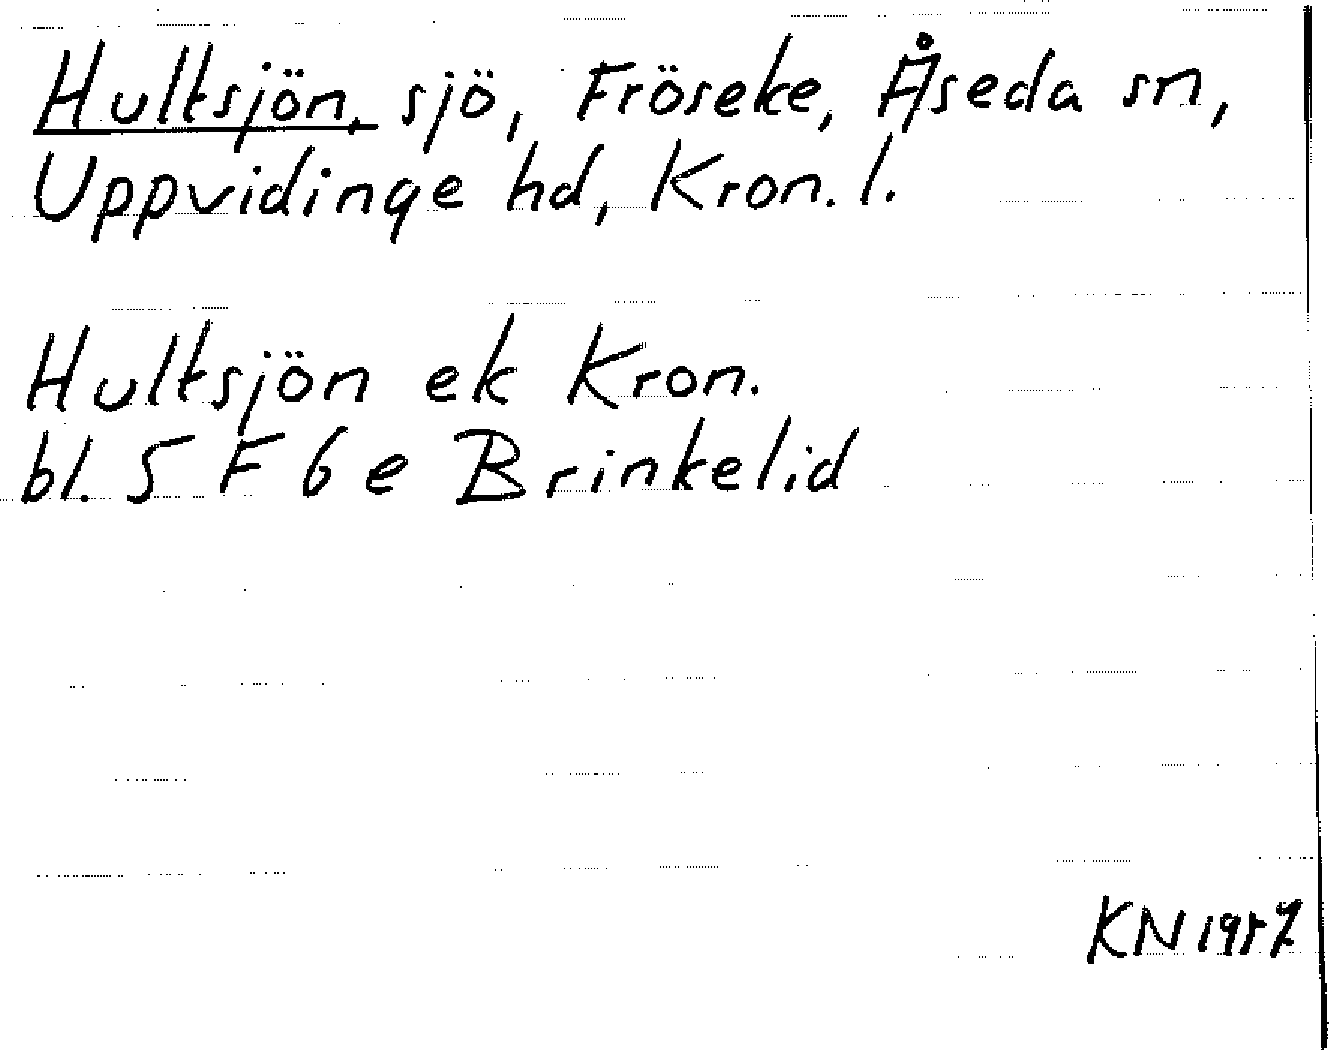 Hultsjön, sjö, Fröseke, Åseda sn,
Uppvidinge hd, Kron. l.
Hultsjön ek Kron.
bl. 5 F 6 e Brinkelid
KN 1957